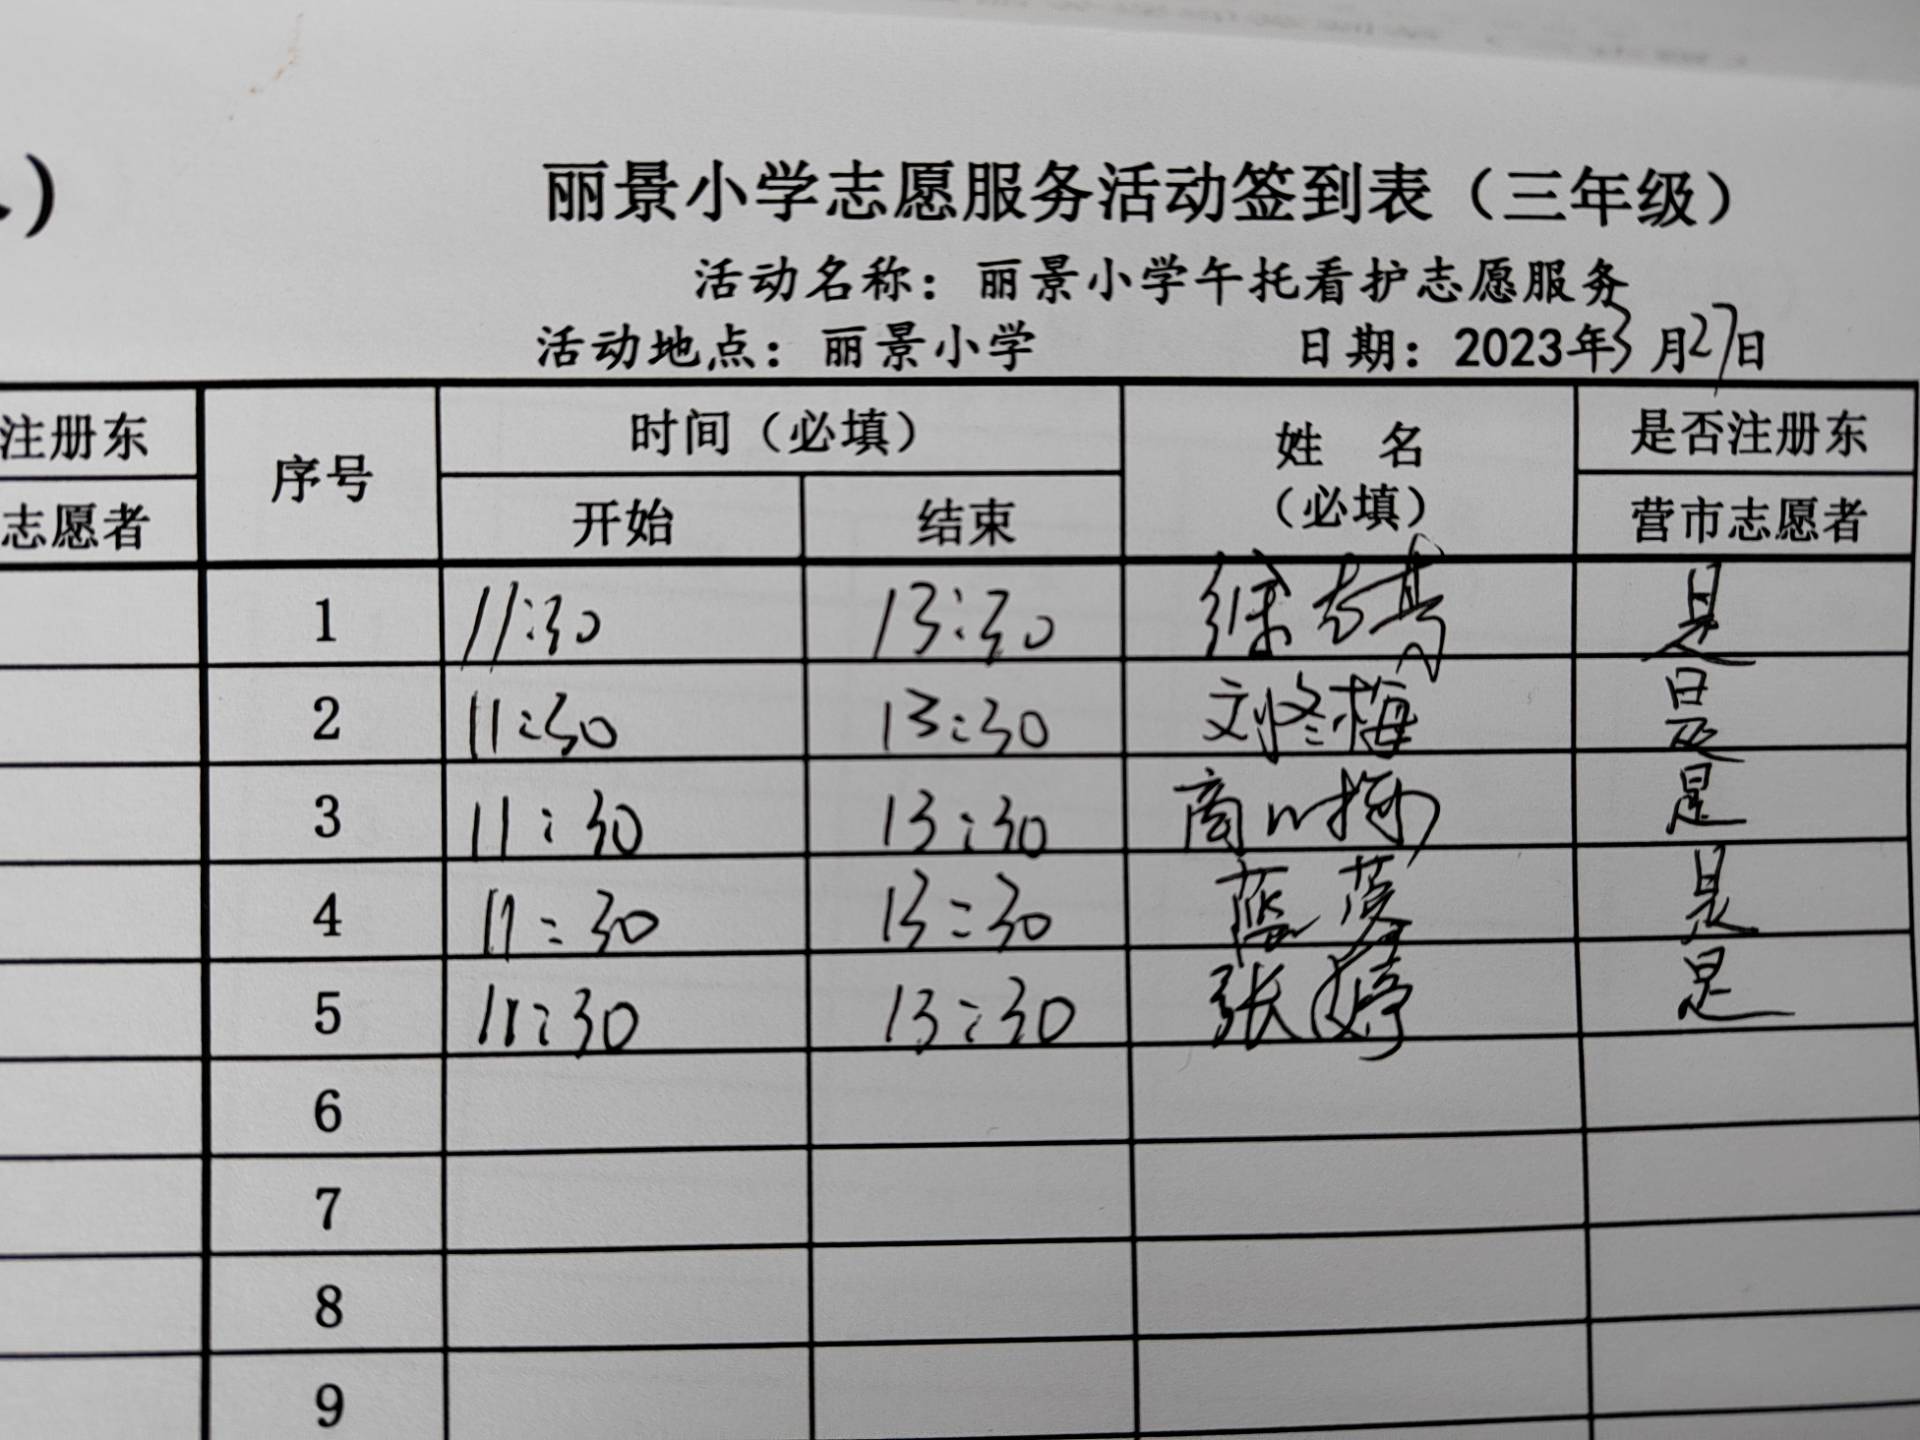 丽景小学志愿服务活动签到表（三年级）
活动名称：丽景小学午托看护志愿服务
活动地点：丽景小学 日期：2023年3月27日
注册东 序号 时间（必填） 姓 名 是否注册东
志愿者 开始 结束 （必填） 营市志愿者
1 11:30 13:30 徐 是
2 11:30 13:30 刘冬梅 是
3 11:30 13:30 商 是
4 11:30 13:30 蓝 是
5 11:30 13:30 张婷 是
6
7
8
9